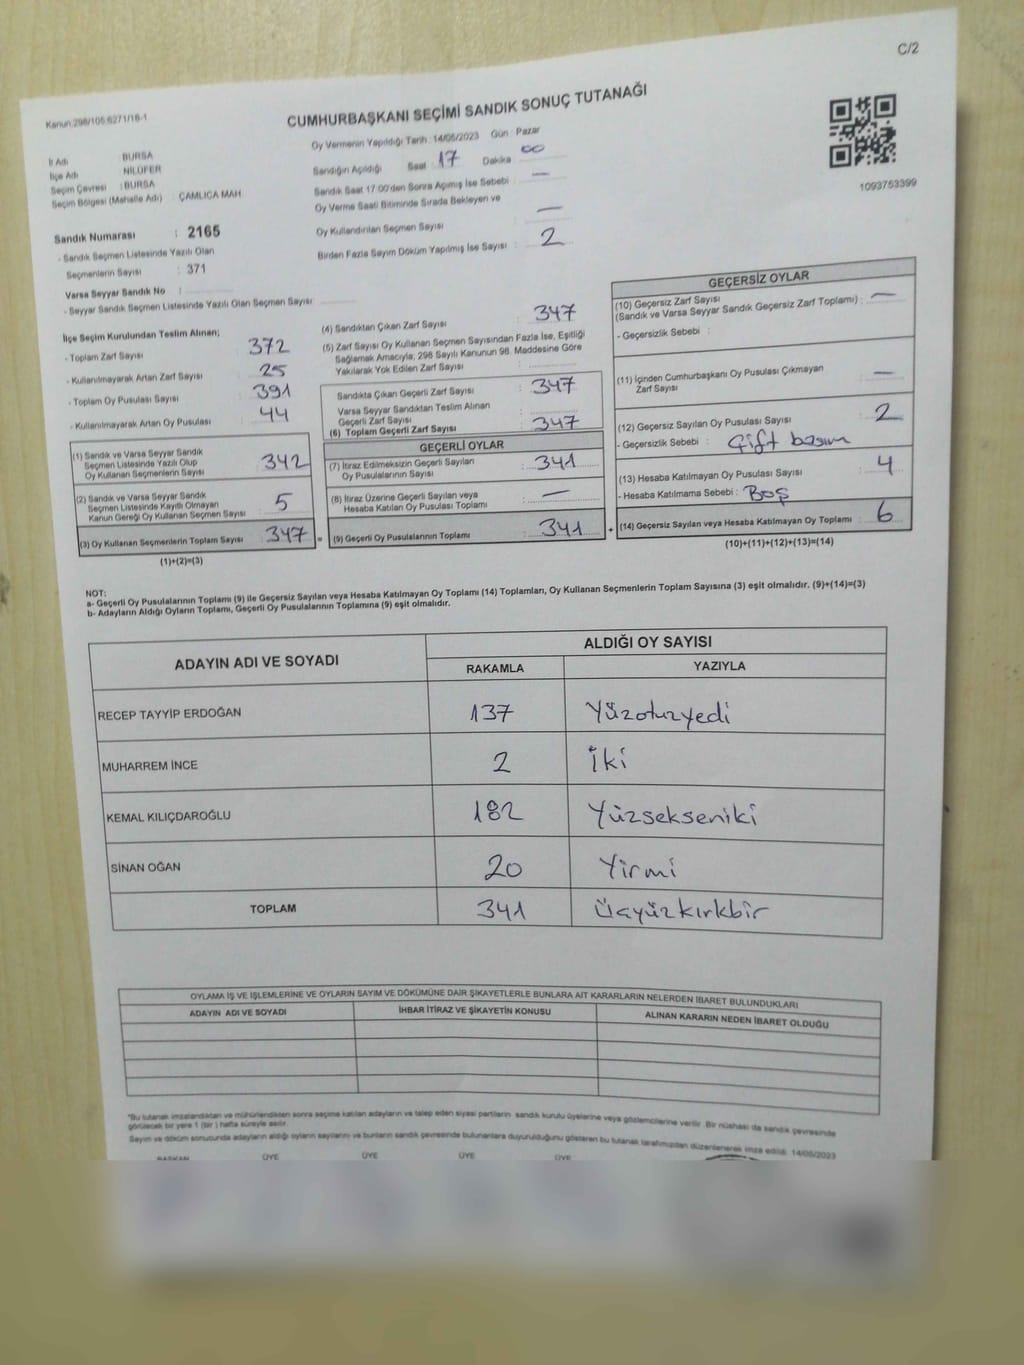 C/2
Kanun:298/105,6271/16-1
CUMHURBAŞKANI SEÇİMİ SANDIK SONUÇ TUTANAĞI
Oy Vermenin Yapıldığı Tarih : 14/05/2023 Gün : Pazar
İl Adı : BURSA
İlçe Adı : NİLÜFER
Seçim Çevresi : BURSA
Seçim Bölgesi (Mahalle Adı) : ÇAMLICA MAH.
Sandığın Açıldığı Saat : 17 Dakika : 00
Sandık Saat 17:00'den Sonra Açılmış İse Sebebi : —
Oy Verme Saati Bitiminde Sırada Bekleyen ve
Oy Kullandırılan Seçmen Sayısı : —
Birden Fazla Sayım Döküm Yapılmış İse Sayısı : 2
1093753399
Sandık Numarası : 2165
- Sandık Seçmen Listesinde Yazılı Olan
Seçmenlerin Sayısı : 371
Varsa Seyyar Sandık No :
- Seyyar Sandık Seçmen Listesinde Yazılı Olan Seçmen Sayısı
İlçe Seçim Kurulundan Teslim Alınan;
- Toplam Zarf Sayısı : 372
- Kullanılmayarak Artan Zarf Sayısı : 25
- Toplam Oy Pusulası Sayısı : 391
- Kullanılmayarak Artan Oy Pusulası : 44
(1) Sandık ve Varsa Seyyar Sandık
Seçmen Listesinde Yazılı Olup
Oy Kullanan Seçmenlerin Sayısı : 342
(2) Sandık ve Varsa Seyyar Sandık
Seçmen Listesinde Kayıtlı Olmayan
Kanun Gereği Oy Kullanan Seçmen Sayısı : 5
(3) Oy Kullanan Seçmenlerin Toplam Sayısı : 347
(1)+(2)=(3)
(4) Sandıktan Çıkan Zarf Sayısı : 347
(5) Zarf Sayısı Oy Kullanan Seçmen Sayısından Fazla İse, Eşitliği
Sağlamak Amacıyla, 298 Sayılı Kanunun 98. Maddesine Göre
Yakılarak Yok Edilen Zarf Sayısı :
Sandıkta Çıkan Geçerli Zarf Sayısı : 347
Varsa Seyyar Sandıktan Teslim Alınan
Geçerli Zarf Sayısı :
(6) Toplam Geçerli Zarf Sayısı : 347
GEÇERLİ OYLAR
(7) İtiraz Edilmeksizin Geçerli Sayılan
Oy Pusulalarının Sayısı : 341
(8) İtiraz Üzerine Geçerli Sayılan veya
Hesaba Katılan Oy Pusulası Toplamı : —
= (9) Geçerli Oy Pusulalarının Toplamı : 341 +
GEÇERSİZ OYLAR
(10) Geçersiz Zarf Sayısı
(Sandık ve Varsa Seyyar Sandık Geçersiz Zarf Toplamı) : —
- Geçersizlik Sebebi :
(11) İçinden Cumhurbaşkanı Oy Pusulası Çıkmayan
Zarf Sayısı : —
(12) Geçersiz Sayılan Oy Pusulası Sayısı : 2
- Geçersizlik Sebebi : Çift basım
(13) Hesaba Katılmayan Oy Pusulası Sayısı : 4
- Hesaba Katılmama Sebebi : Boş
(14) Geçersiz Sayılan veya Hesaba Katılmayan Oy Toplamı : 6
(10)+(11)+(12)+(13)=(14)
NOT:
a- Geçerli Oy Pusulalarının Toplamı (9) ile Geçersiz Sayılan veya Hesaba Katılmayan Oy Toplamı (14) Toplamları, Oy Kullanan Seçmenlerin Toplam Sayısına (3) eşit olmalıdır. (9)+(14)=(3)
b- Adayların Aldığı Oyların Toplamı, Geçerli Oy Pusulalarının Toplamına (9) eşit olmalıdır.
ADAYIN ADI VE SOYADI ALDIĞI OY SAYISI
RAKAMLA YAZIYLA
RECEP TAYYİP ERDOĞAN 137 Yüzotuzyedi
MUHARREM İNCE 2 İki
KEMAL KILIÇDAROĞLU 182 Yüzsekseniki
SİNAN OĞAN 20 Yirmi
TOPLAM 341 Üçyüzkırkbir
OYLAMA İŞ VE İŞLEMLERİNE VE OYLARIN SAYIM VE DÖKÜMÜNE DAİR ŞİKAYETLERLE BUNLARA AİT KARARLARIN NELERDEN İBARET BULUNDUKLARI
ADAYIN ADI VE SOYADI İHBAR İTİRAZ VE ŞİKAYETİN KONUSU ALINAN KARARIN NEDEN İBARET OLDUĞU
*Bu tutanak imzalandıktan ve mühürlendikten sonra seçime katılan adayların ve talep eden siyasi partilerin sandık kurulu üyelerine veya gözlemcilerine verilir. Bir nüshası da sandık çevresinde
görülecek bir yere 1 (bir) hafta süreyle asılır.
Sayım ve döküm sonucunda adayların aldığı oyların sayılarını ve bunların sandık çevresinde bulunanlara duyurulduğunu gösteren bu tutanak tarafımızdan düzenlenerek imza edildi. 14/05/2023
BAŞKAN ÜYE ÜYE ÜYE ÜYE